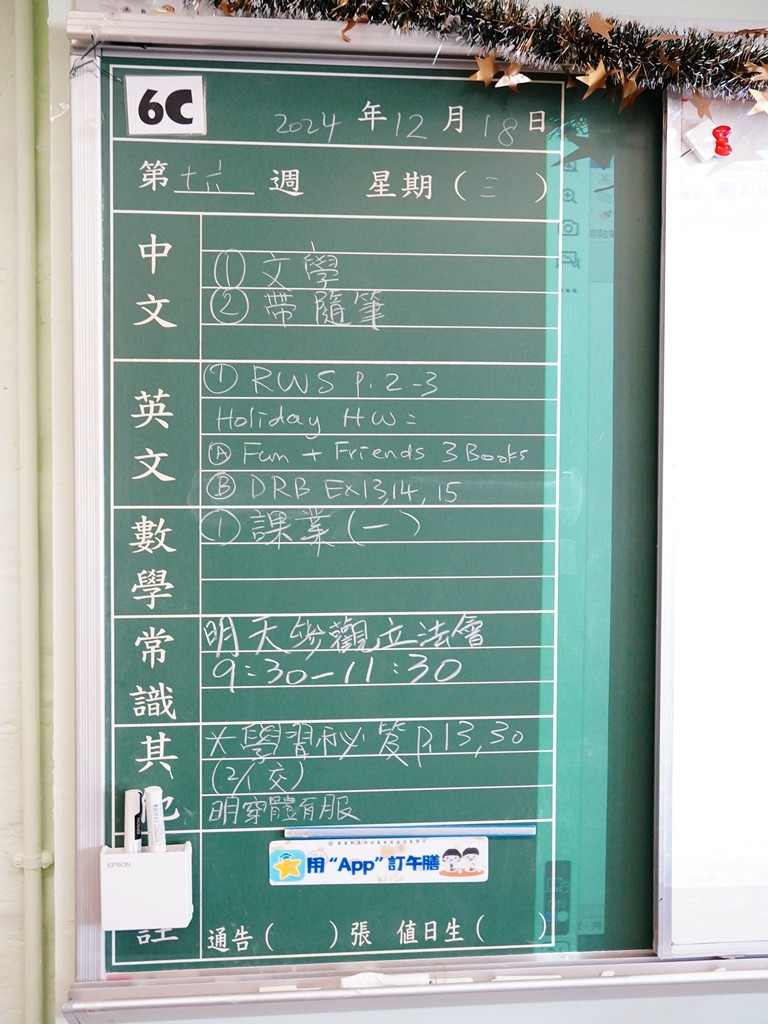 6C
2024 年 12 月 18 日
第 十六 週 星期 ( 三 )
中文
① 文學
② 帶隨筆
英文
① RWS p. 2-3
Holiday HW:
Ⓐ Fun + Friends 3 Books
Ⓑ DRB Ex 13, 14, 15
數學
① 課業 (一)
常識
明天參觀立法會
9:30-11:30
其
* 學習秘笈 p.13, 30
(2/1 交)
明穿體育服
EPSON
用 “App” 訂午膳
註
通告 ( ) 張 值日生 ( )